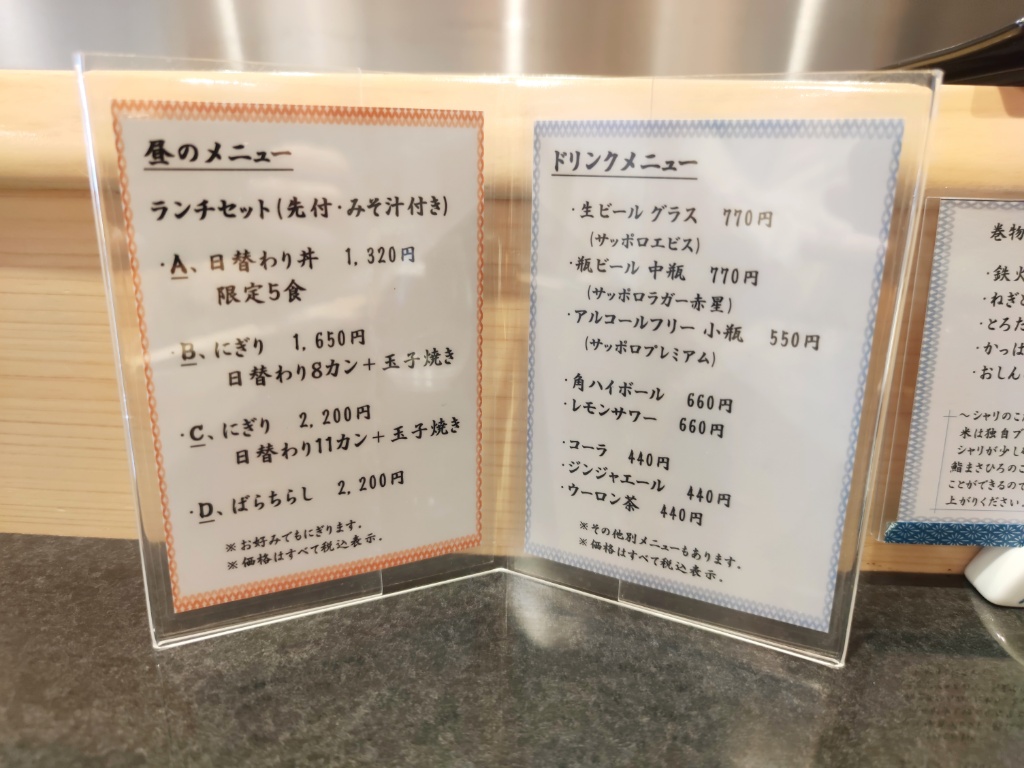 昼のメニュー
ランチセット(先付・みそ汁付き)
・A、日替わり丼 1,320円
限定5食
・B、にぎり 1,650円
日替わり8カン+玉子焼き
・C、にぎり 2,200円
日替わり11カン+玉子焼き
・D、ばらちらし 2,200円
※お好みでもにぎります。
※価格はすべて税込表示。
ドリンクメニュー
・生ビール グラス 770円
(サッポロエビス)
・瓶ビール 中瓶 770円
(サッポロラガー赤星)
・アルコールフリー 小瓶 550円
(サッポロプレミアム)
・角ハイボール 660円
・レモンサワー 660円
・コーラ 440円
・ジンジャエール 440円
・ウーロン茶 440円
※その他別メニューもあります。
※価格はすべて税込表示。
巻物
・鉄火
・ねぎ
・とろた
・かっぱ
・おしん
~シャリのこ
米は独自ブ
シャリが少し
鮨まさひろのこ
ことができるので
上がりください